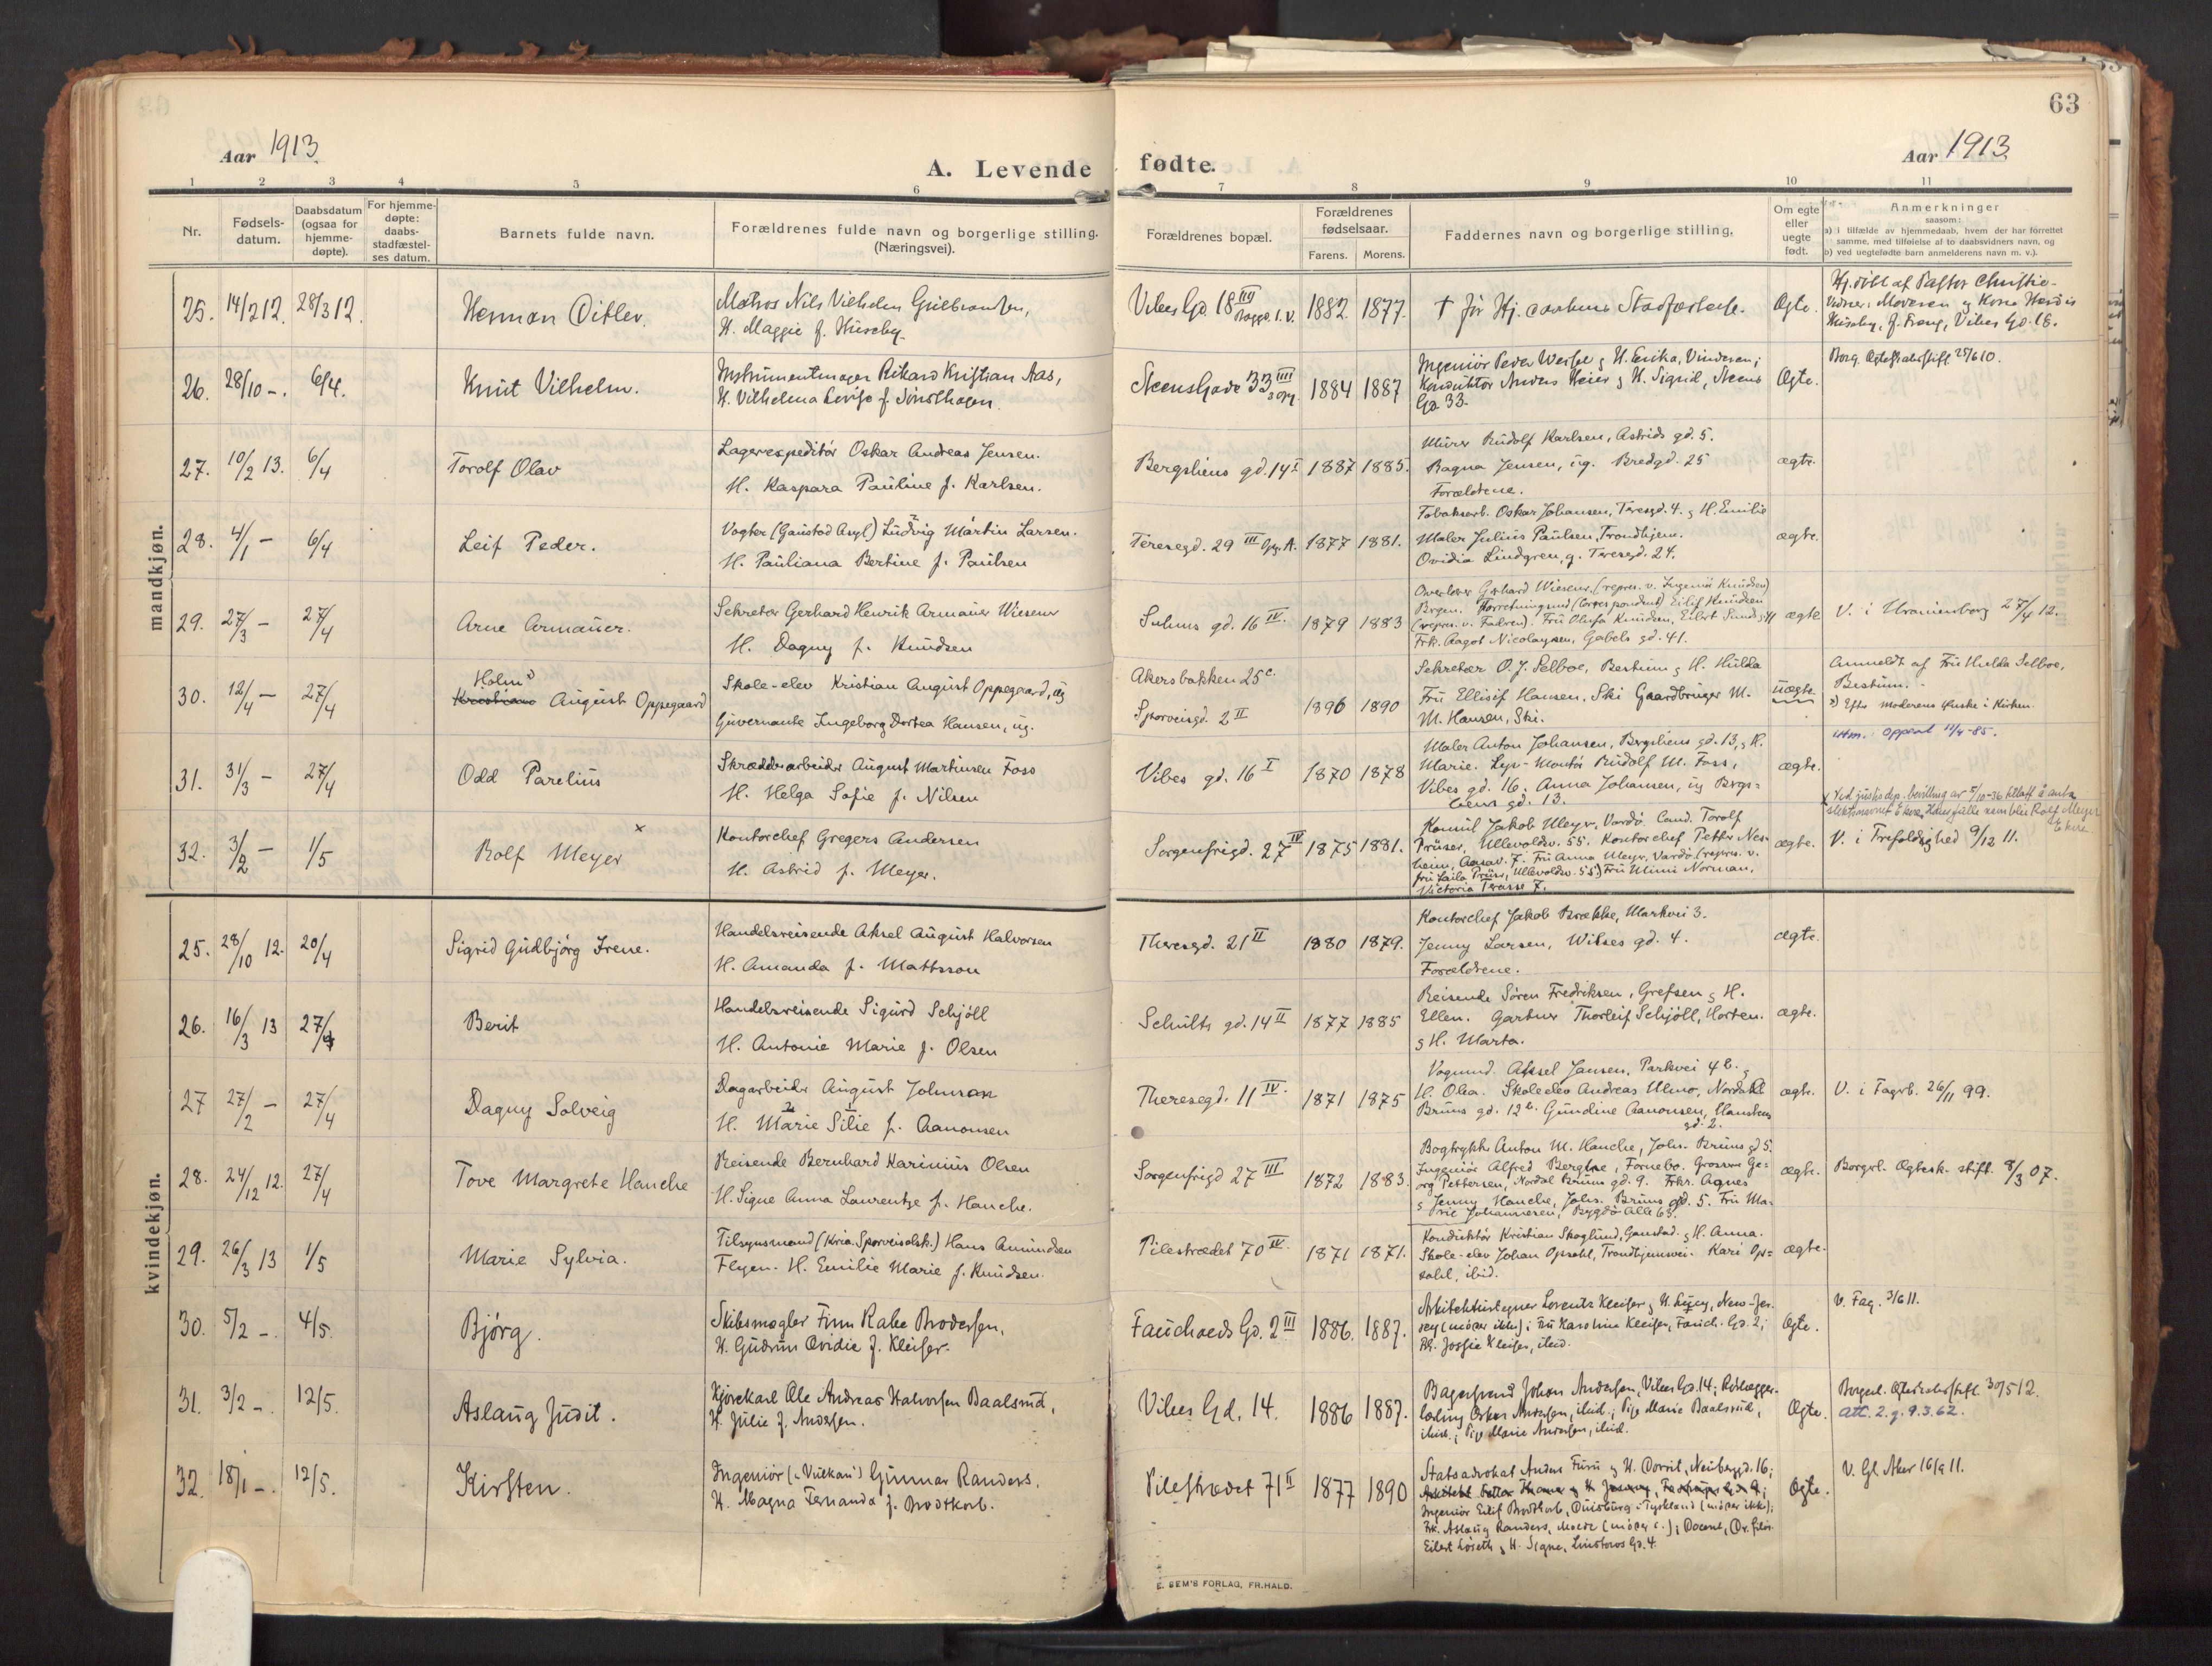 63
Aar 1913.
A. Levende fødte.
Aar 1913
1 2 3 4 5 6 7 8 9 10 11
Nr.
Fødsels-
datum.
Daabsdatum
(ogsaa for
hjemme-
døpte).
For hjemme-
døpte:
daabs-
stadfæstel-
ses datum.
Barnets fulde navn.
Forældrenes fulde navn og borgerlige stilling.
(Næringsvei).
Forældrenes bopæl.
Forældrenes
fødselsaar.
Farens. Morens.
Faddernes navn og borgerlige stilling.
Om egte
eller
uegte
født.
Anmerkninger
saasom:
a) i tilfælde av hjemmedaab, hvem der har forrettet
samme, med tilføielse af to daabsvidners navn, og
b) ved uegtefødte barn anmelderens navn m. v.).
mandkjøn.
25. 14/2 12. 28/3 12. Herman Ditlev.
Matros Nils Vilhelm Gulbrandsen,
H. Maggie f. Huseby.
Vibes Gd. 18 III
1882 1877.
† før Hj. daabens Stadfæstelse.
Ægte.
Hj. døbt af Pastor Christie-
Huseby, f. Frang, Vibes Gd. 18.
26. 28/10 -. 6/4. Knut Vilhelm.
Instrumentmager Rikard Kristian Aas,
H. Vilhelma Lovise f. Sønsthagen.
Steens Gade 33 III
1884 1887
Ingeniør Peder Wessel & H. Erika, Vinderen;
Konduktør Anders Heier & H. Sigrid, Steens
Gd. 33.
Ægte.
Borg. Ægteskabsstift. 25/6 10.
27. 10/2 13. 6/4 Torolf Olav
Lagerexpeditør Oskar Andreas Jensen.
H. Kaspara Pauline f. Karlsen.
Bergsliens gd. 14 I
1887 1885.
Murer Rudolf Karlsen, Astrids gd. 5.
Ragna Jensen, ug. Bredgd. 25
Forældrene.
ægte.
28. 4/1 - 6/4 Leif Peder.
Vogter (Gaustad Asyl) Ludvig Martin Larsen.
H. Pauliana Bertine f. Paulsen
Teresegd. 29 III Opg. A.
1877 1881.
Tobaksarb. Oskar Johansen, Teresgd. 4. & H. Emilie
Maler Julius Paulsen, Trondhjem.
Ovidia Lindgren, g. Teresgd. 24.
ægte.
29. 27/3 - 27/4 Arne Armauer.
Sekretær Gerhard Henrik Armauer Wiesener
H. Dagny f. Knudsen
Suhms gd. 16 IV.
1879 1883
Overlærer Gerhard Wiesener, (repres. v. Ingeniør Knudsen)
Bergen. Forretningsmd (Correspondent) Eilif Knudsen
(repres. v. Faderen). Fru Olufa Knudsen, Eilert Sundsgd.
Frk. Aagot Nicolaysen, Gabels gd. 41.
ægte
V. i Uranienborg 27/4 12.
30. 12/4 - 27/4
Holm
Kristian August Oppegaard
Skole-elev Kristian August Oppegaard, ug
Guvernante Ingeborg Dortea Hansen, ug.
Akersbakken 25c.
Sporveisgd. 2 II
1896 1890
Sekretær O. J. Selboe, Bestum & H. Hulda
Fru Ellisif Hansen, Ski Gaardbruger M.
M. Hansen, Ski.
uægte
Anmeldt af Fru Hulda Selboe,
Bestum.
x) Efter moderens ønske i Kirken.
31. 31/3 - 27/4 Odd Parelius
Skrædderarbeider August Martinsen Foss
H. Helga Sofie f. Nilsen
Vibes gd. 16 I
1870 1878
Maler Anton Johansen, Bergsliens gd. 13, & H.
Marie. Lys-Montør Rudolf M. Foss,
Vibes gd. 16. Anna Johansen, ug Bergs-
liens gd. 13.
ægte.
32. 3/2 - 1/5 Rolf Meyer x
Kontorchef Gregers Andersen
H. Astrid f. Meyer.
Sorgenfrigd. 27 IV
1875 1881.
Konsul Jakob Meyer, Vardø. Cand. Torolf
Prüser, Ullevoldsv. 55. Kontorchef Petter Nes-
heim, Aasav. 7. Fru Anna Meyer, Vardø (repres. v.
fru Laila Prüser, Ullevoldsv. 55) Fru Mimi Norman,
Victoria Terasse 7.
ægte.
x Ved justisdep. bevilling av 5/10-36 tillatt å anta
V. i Trefoldighed 9/12 11.
kvindekjøn.
25. 28/10 12. 20/4 Sigrid Gudbjørg Irene.
Handelsreisende Aksel August Halvorsen
H. Amanda f. Mattsson
Theresgd. 21 II
1880 1879.
Kontorchef Jakob Brække, Markvei 3.
Jenny Larsen, Wilses gd. 4.
Forældrene.
ægte.
26. 16/3 13 27/4 Berit
Handelsreisende Sigurd Schjöll
H. Antonie Marie f. Olsen
Schults gd. 14 II
1877 1885
Reisende Søren Fredriksen, Grefsen & H.
Ellen. Gartner Thorleif Schjöll, Horten.
& H. Marta.
ægte.
27 27/2 - 27/4 Dagny Solveig
Dagarbeider August Johnson
H. Marie Silie f. Aanonsen
Theresegd. 11 IV.
1871 1875
Vognmd. Aksel Jansen, Parkvei 4b. &
H. Olea. Skoleelev Andreas Ulmo, Nordahl
Bruns gd. 12b. Gundine Aanonsen, Hanstens
gd. 2.
ægte.
V. i Fagrb. 26/11 99.
28. 24/12 12. 27/4 Tove Margrete Hanche
Reisende Bernhard Karinius Olsen
H. Signe Anna Laurentze f. Hanche.
Sorgenfrigd 27 III
1872 1883.
Bogtrykk. Anton M. Hanche, Johs. Bruns gd 5.
Ingeniør Alfred Berglse, Fornebo. Grosserer Ge-
org Pettersen, Nordal Bruns gd. 9. Frkr. Agnes
& Jenny Hanche, Johs. Bruns gd. 5. Fru Ma-
rie Johannesen, Bygdø Allé 63.
ægte.
Borgerl. Ægtesk. stift. 8/3 07.
29. 26/3 13 1/5 Marie Sylvia.
Tilsynsmand (Kria. Sporveiselsk.) Hans Amundsen
Flyen. H. Emilie Marie f. Knudsen.
Pilestrædet 70 IV.
1871 1871.
Konduktør Kristian Skoglund, Gaustad. & H. Anna.
Skole-elev Johan Opsahl, Trondhjemsvei. Kari Op-
sahl, ibid.
ægte.
30. 5/2 -. 4/5. Bjørg.
Skibsmægler Finn Rabe Brodersen,
H. Gudrun Ovidie f. Kleiser.
Fauchaeds Gd. 2 III
1886. 1887.
Arkitekturtegner Lorentz Kleiser & H. Lucy, New-Jer-
sey (møder ikke); Fru Karolina Kleiser, Fauch. Gd. 2;
Frk. Jossie Kleiser, ibid.
Ægte.
V. Fag. 3/6 11.
31. 3/2 -. 12/5. Aslaug Judit.
Kjørekarl Ole Andreas Halvorsen Baalsrud,
H. Julie f. Andersen.
Vibes Gd. 14.
1886 1887.
Bagersvend Johan Andersen, Vibes Gd. 14; Rørlægger-
lærling Oskar Andersen, ibid.; Pige Marie Baalsrud,
ibid.; Pige Marie Andersen, ibid.
Ægte.
Borgerl. Ægteskabsstift. 30/5 12.
Att. 2. g. 9.3.62.
32. 18/1 -. 12/5. Kirsten.
Ingeniør („Vulkan") Gunnar Randers.
H. Magna Fernanda f. Brodtkorb.
Pilestrædet 71 II
1877 1890
Statsadvokat Anders Furu & H. Dorrit, Neubergd. 16;
Ingeniør Eilif Brodtkorb, Duisburg i Tyskland (møder ikke);
Frk. Aslaug Randers, Molde (møder i.); Docent, Dr. filos.
Eilert Løseth & H. Signe, Linstows Gd. 4.
Ægte.
V. Gl. Aker 16/9 11.
E. SEM'S FORLAG, FR.HALD.